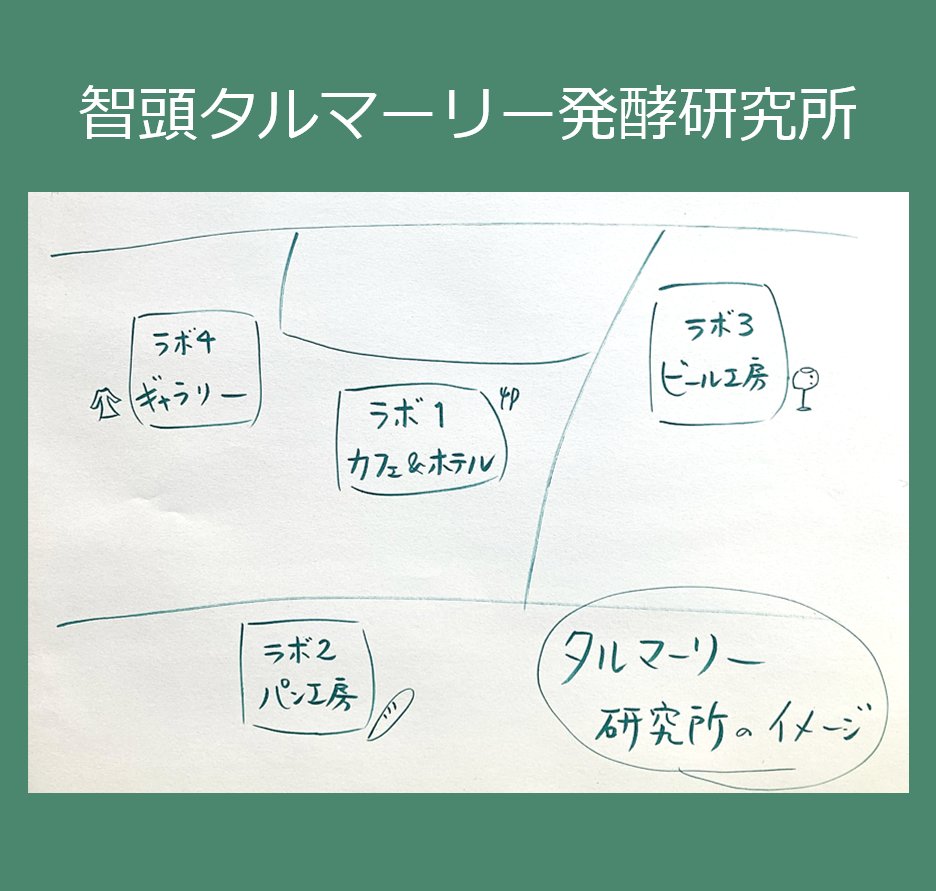 智頭タルマーリー発酵研究所
ラボ4
ギャラリー
ラボ1
カフェ&ホテル
ラボ3
ビール工房
ラボ2
パン工房
タルマーリー
研究所のイメージ